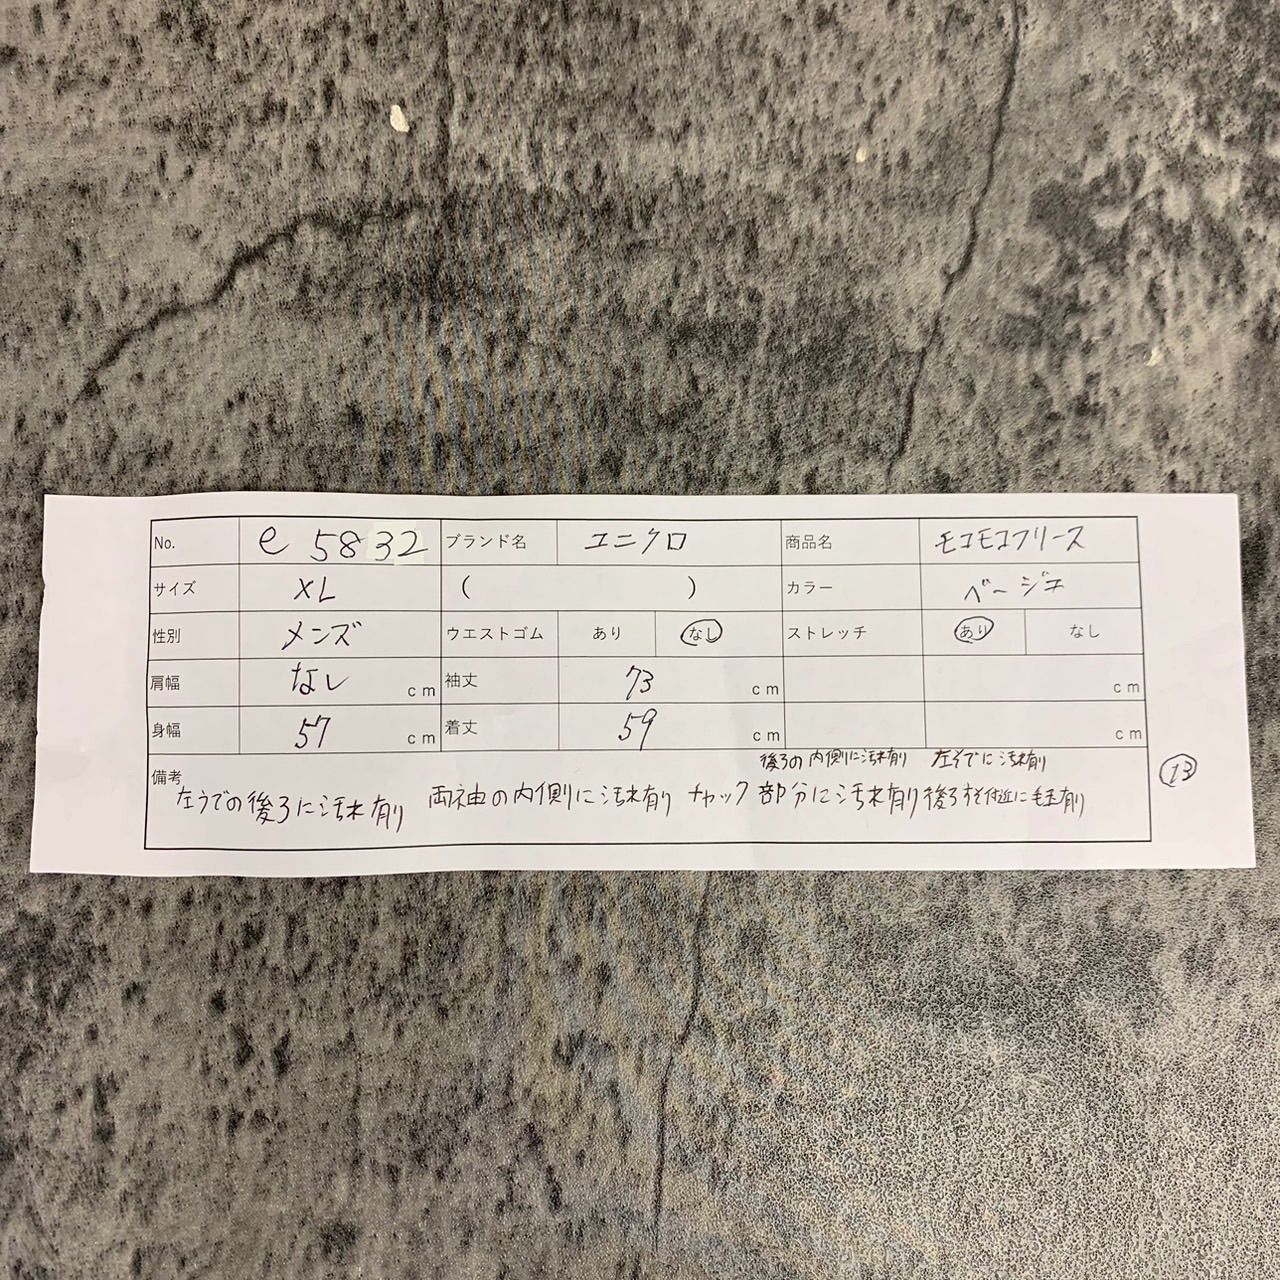 No. e 5832 ブランド名 ユニクロ 商品名 モコモコフリース
サイズ XL ( ) カラー ベージュ
性別 メンズ ウエストゴム あり なし ストレッチ あり なし
肩幅 なし cm 袖丈 73 cm cm
身幅 57 cm 着丈 59 cm cm
備考 後ろの内側に汚れ有り 左そでに汚れ有り
左うでの後ろに汚れ有り 両袖の内側に汚れ有り チャック部分に汚れ有り 後ろすそ付近に毛玉有り
13